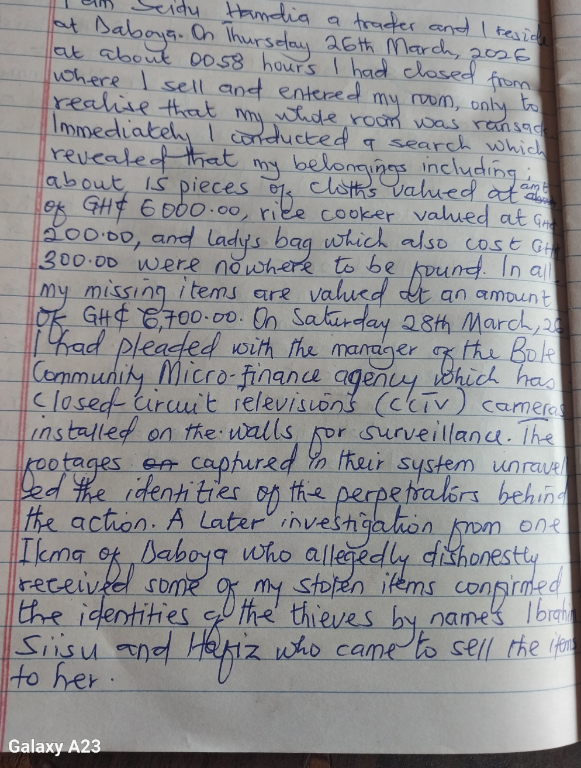 I am Seidu Hamdia a trader and I reside
at Daboya. On Thursday 26th March, 2026
at about 0058 hours I had closed from
where I sell and entered my room, only to
realise that my whole room was ransack
Immediately I conducted a search which
revealed that my belongings including;
about 15 pieces of cloths valued at amt
of GH₵ 6000.00, rice cooker valued at GH₵
200.00, and ladys bag which also cost GH
300.00 were nowhere to be found. In all
my missing items are valued at an amount
of GH₵ 6,700.00. On Saturday 28th March, 26
I had pleaded with the manager of the Bole
Community Micro-finance agency which has
closed-circuit televisions (CCTV) cameras
installed on the walls for surveillance. The
footages on captured in their system unravel
led the identities of the perpetrators behind
the action. A Later investigation from one
Ikma of Daboya who allegedly dishonestly
received some of my stolen items confirmed
the identities of the thieves by names Ibrahi
Siisu and Hafiz who came to sell the items
to her.
Galaxy A23